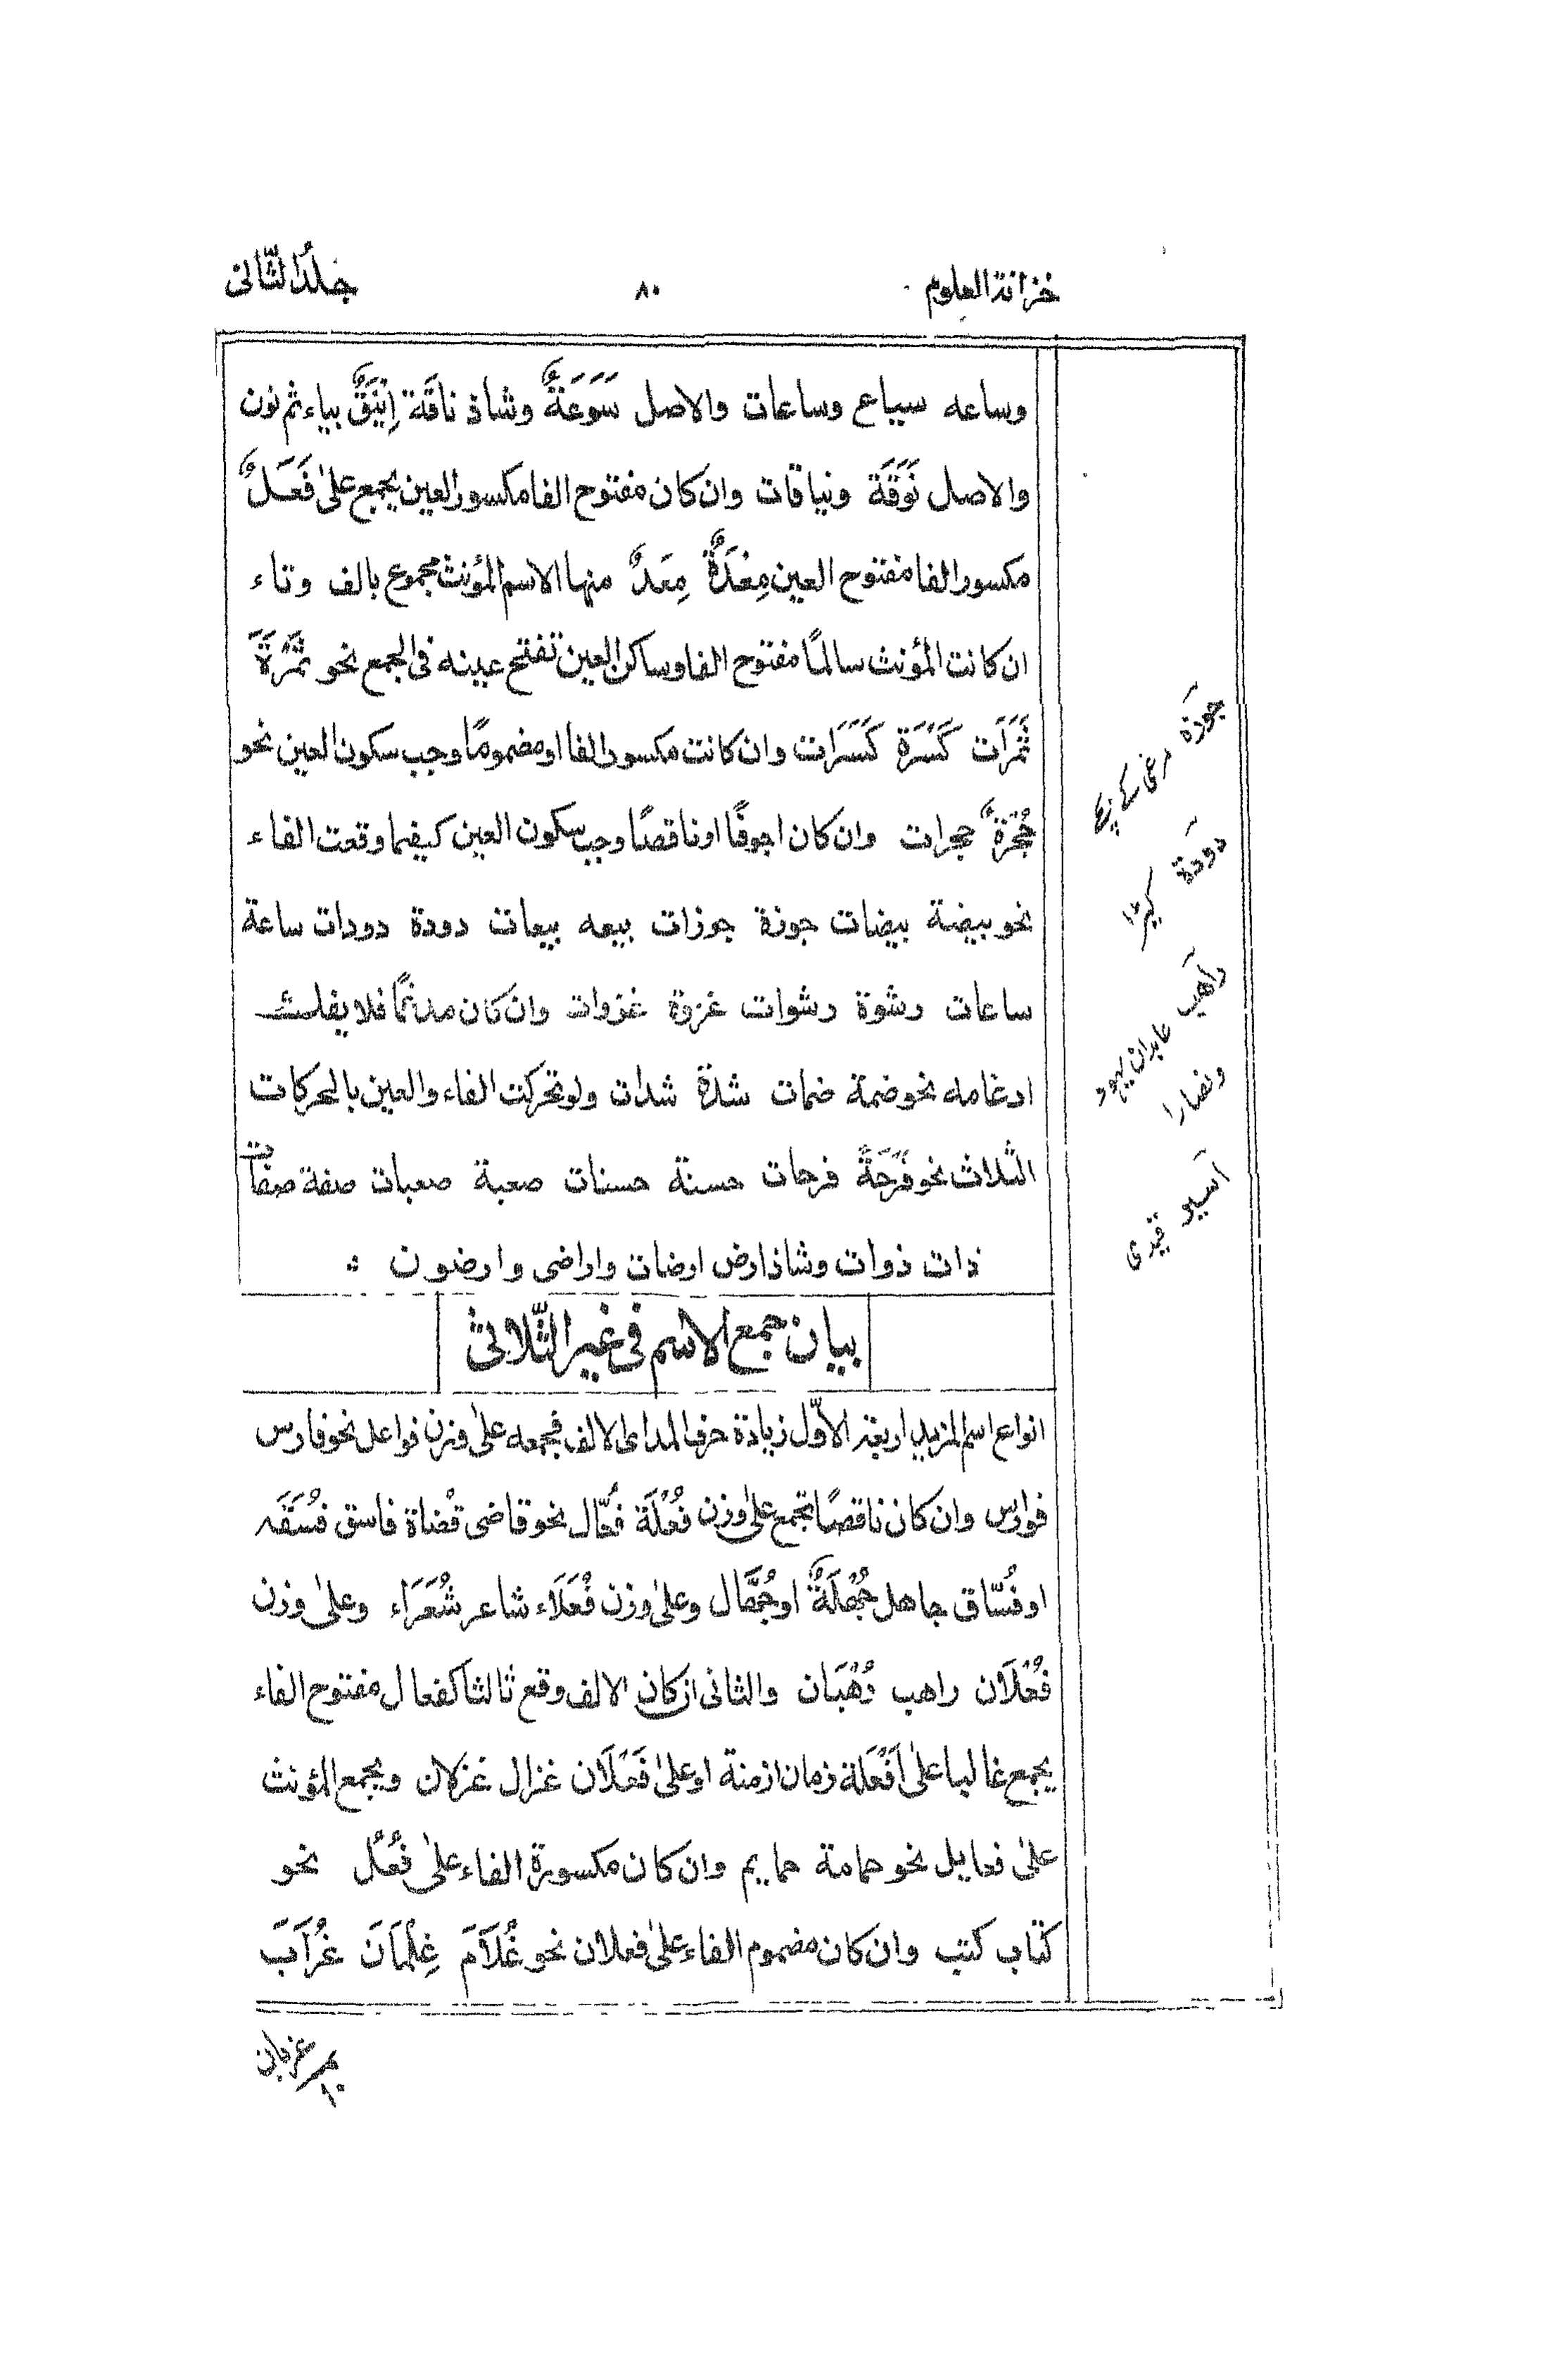 خزانة العلوم ٨٠ جلد الثّانی
وساعه سیاع وساعات والاصل سَوَعَةٌ وشاذ ناقَة اِیْنَقٌ بیاء ثم نون
والاصل نَوَقَة ونیاقات وان کان مفتوح الفا مکسور العین یجمع علیٰ فَعَلٌ
مکسور الفا مفتوح العین مِعْدَةٌ مِعَدٌ منها الاسم المؤنث مجموع بالف وتاء
ان کانت المؤنث سالمًا مفتوح الفا وساکن العین تفتح عینه فی الجمع نحو ثَمْرَة
ثَمَرَات کَسْرَة کَسَرَات وان کانت مکسور الفا او مضمومًا وجب سکون العین نحو
حُجْرَةٌ حجرات وان کان اجوفًا او ناقصًا وجب سکون العین کیفما وقعت الفاء
نحو بیضة بیضات جوزة جوزات بیعه بیعات دودة دودات ساعة
ساعات رشوة رشوات غزوة غزوات وان کان مدغمًا فلا یفک
ادغامه نحو ضمة ضمات شدّة شدات ولو تحرکت الفاء والعین بالحرکات
الثلاث نحو فَرَحَةٌ فرحات حسنة حسنات صعبة صعبات صفة صفات
ذات ذوات وشاذ ارض ارضات واراضی وارضون
بیان جمع الاسم فی غیر الثّلاثی
انواع اسم المزید اربعة الاوّل زیادة حرف المد ای الالف فجمعه علیٰ وزن فواعل نحو فارس
فوارس وان کان ناقصًا تجمع علیٰ وزن فُعْلَة فُعّال نحو قاضی قُضاة فاسق فُسَقَه
او فُسّاق جاهل جُهْلَةٌ او جُهَّال وعلیٰ وزن فُعَلَاء شاعر شُعَرَاء وعلیٰ وزن
فُعْلَان راهب رُهْبَان والثانی ان کان الالف وقع ثالثا کفعال مفتوح الفاء
یجمع غالبا علیٰ اَفْعَلَة زمان ازمنة او علیٰ فَعْلَان غزال غزلان ویجمع المؤنث
علیٰ فعایل نحو حمامة حمایم وان کان مکسورة الفاء علیٰ فُعُلٌ نحو
کتاب کتب وان کان مضموم الفاء علیٰ فعلان نحو غُلَامَ غِلْمَانَ غُرَابَ
جوزه مرغی کے بچے
دودة کیڑا
راهب عابدان یہود
ونصارا
اسیر قیدی